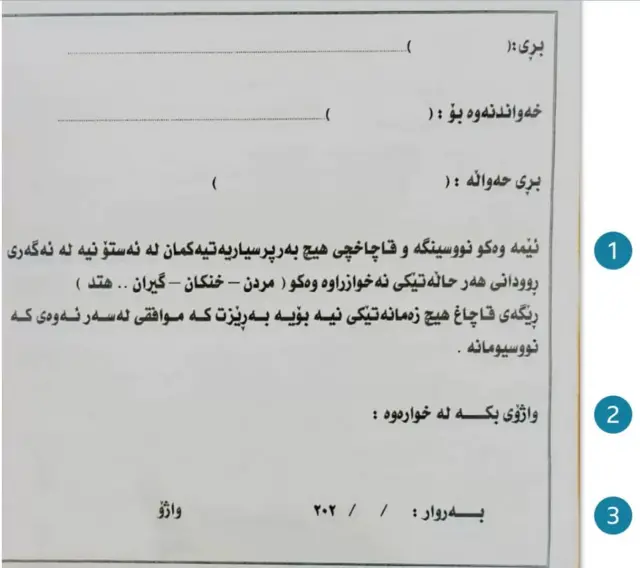 بڕی:(                    )
خەواندنەوە بۆ : (                    )
بڕی حەواڵە : (                    )
ئێمە وەکو نووسینگە و قاچاخچی هیچ بەرپرسیاریەتیەکمان لە ئەستۆ نیە لە ئەگەری
ڕوودانی هەر حاڵەتێکی نەخوازراوە وەکو ( مردن – خنکان – گیران .. هتد )
ڕێگەی قاچاغ هیچ زەمانەتێکی نیە بۆیە بەڕێزت کە موافقی لەسەر ئەوەی کە
نووسیومانە .
واژۆی بکە لە خوارەوە :
بەروار :    /    / ٢٠٢    واژۆ
1
2
3